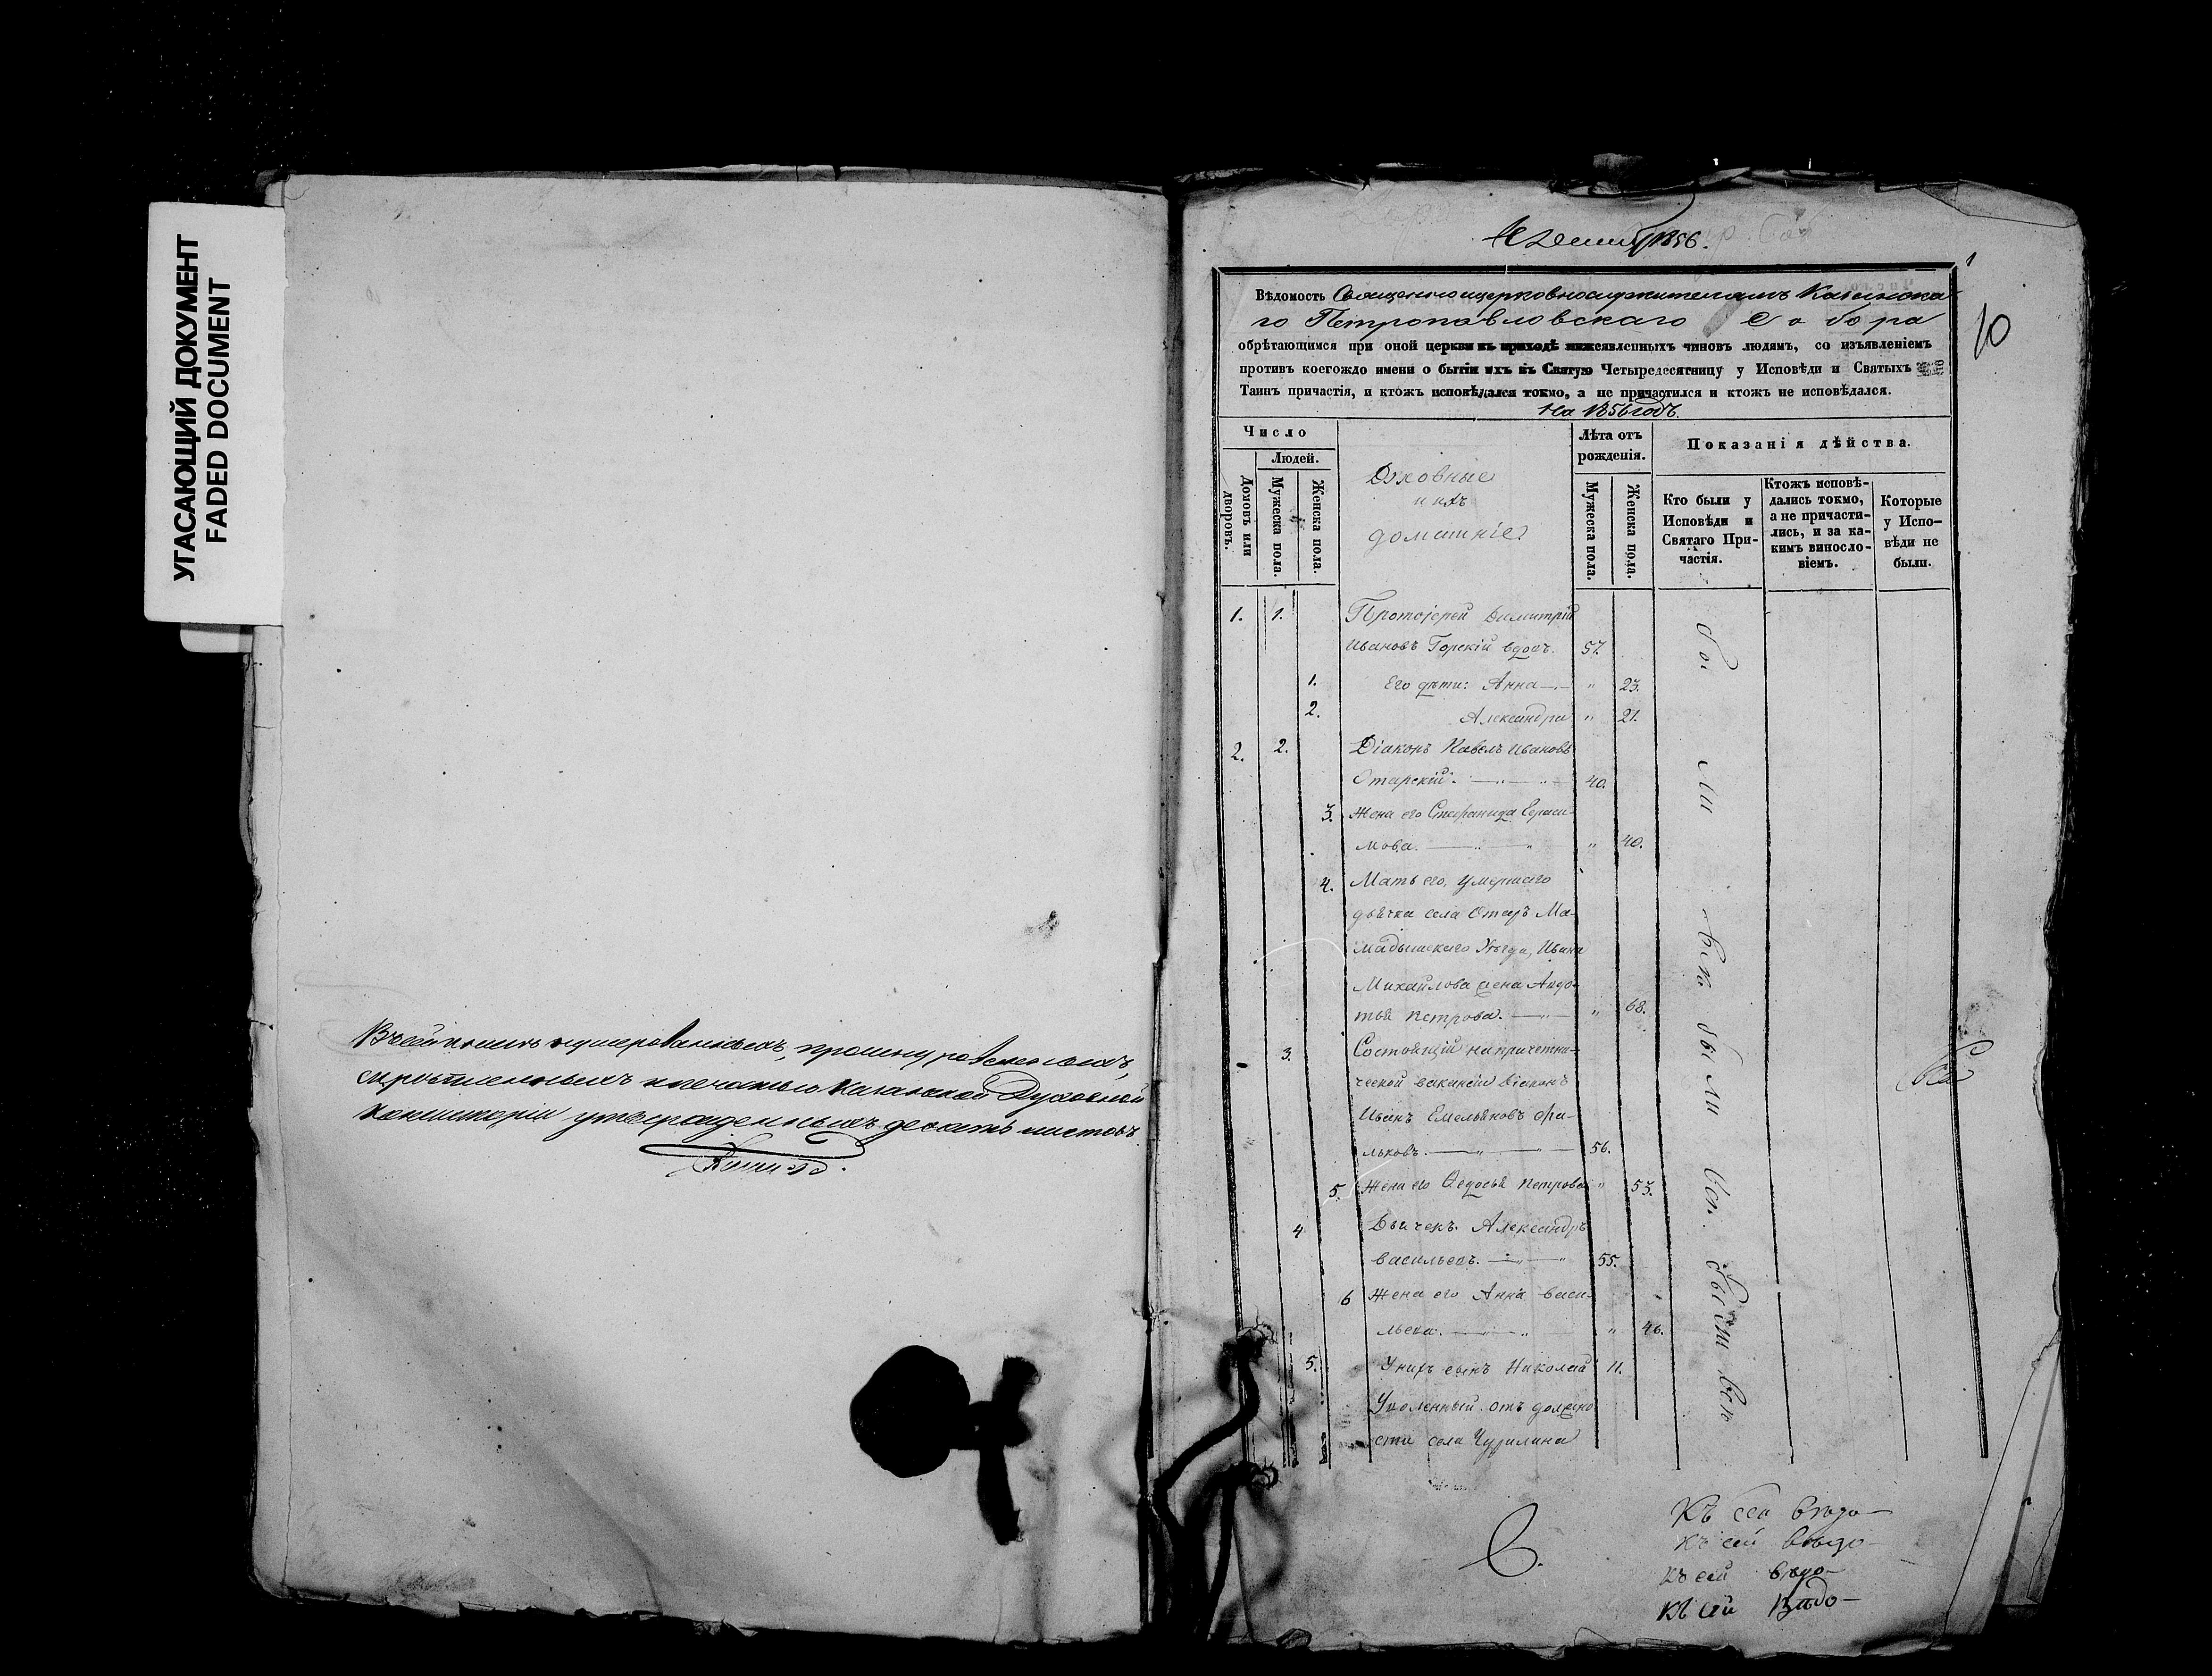 УГАСАЮЩИЙ ДОКУМЕНТ
FADED DOCUMENT
Въ сей книгѣ нумерованныхъ, прошнурованныхъ,
скрѣпленныхъ и печатью Казанской Духовной
Консисторіи утвержденныхъ десять листовъ.
1856.
1
10
Вѣдомость Священноцерковнослужителямъ Казанска
го Петропавловскаго Собора
обрѣтающимся при оной церкви въ приходѣ нижеявленныхъ чиновъ людямъ, со изъявленіемъ
противъ коегождо имени о бытіи ихъ въ Святую Четыредесятницу у Исповѣди и Святыхъ
Таинъ причастія, и ктожъ исповѣдался токмо, а не причастился и ктожъ не исповѣдался.
На 1856 годъ.
Число
Людей.
Домовъ или дворовъ.
Мужеска пола.
Женска пола.
Духовные
и ихъ
домашніе
Лѣта отъ рожденія.
Мужеска пола.
Женска пола.
Показанія дѣйства.
Кто были у Исповѣди и Святаго Причастія.
Ктожъ исповѣдались токмо, а не причастились, и за какимъ винословіемъ.
Которые у Исповѣди не были.
1. 1. Протоіерей Димитрій
Ивановъ Горскій вдовъ. 57.
1. Его дѣти: Анна — " 23.
2. Александра " 21.
2. 2. Діаконъ Павелъ Ивановъ
Отарскій. — " — " 40.
3. Жена его Стефанида Гераси-
мова. — " — " " 40.
4. Мать его, умершаго
дьячка села Отаръ Ма-
мадышскаго Уѣзда, Ивана
Михайлова жена Авдо-
тья Петрова. — " — " 68.
3. Состоящій на причетни-
ческой вакансіи Діаконъ
Иванъ Емельяновъ
льковъ. — " — " 56.
5. Жена его Ѳедосья Петрова " 53.
4 Дьячекъ Александръ
Васильевъ. — " — " 55.
6 Жена его Анна Васи-
льева. — " — " " 46.
5. У нихъ сынъ Николай 11.
Уволенный отъ должно
сти села Чурилина
были
были
Къ сей вѣдо—
Къ сей вѣдо—
Къ сей вѣдо—
Къ сей вѣдо—